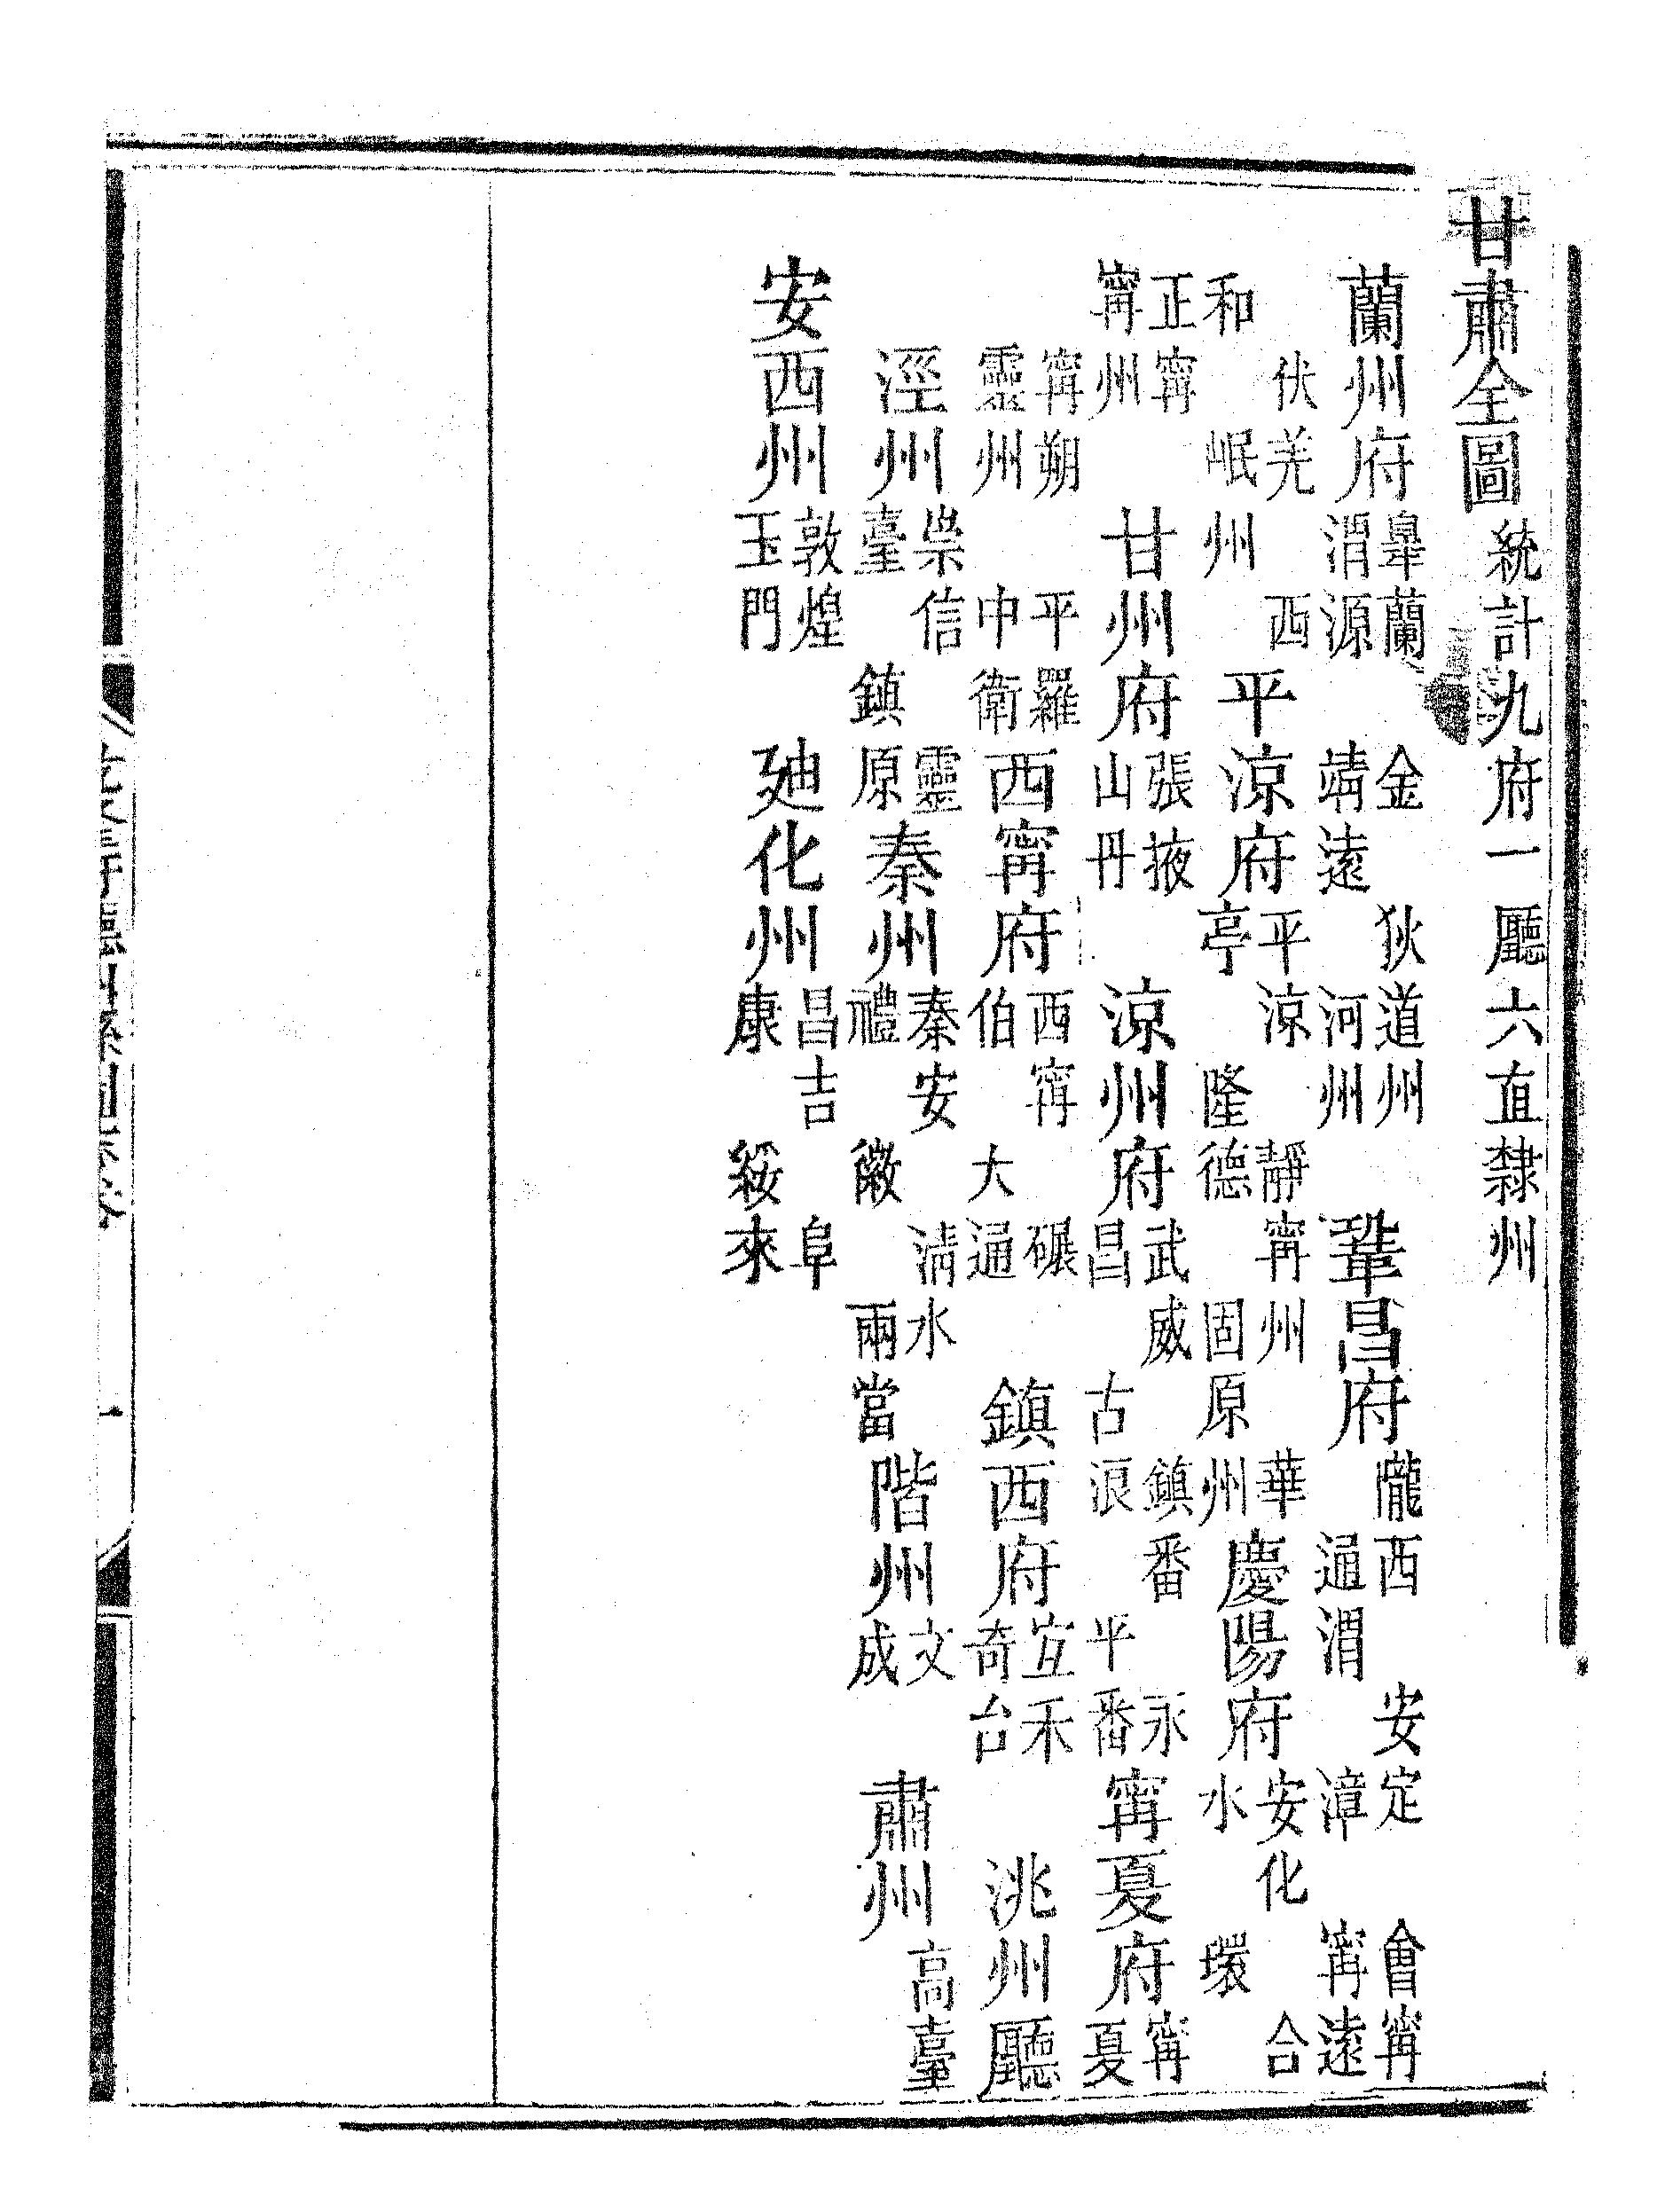 甘肅全圖 統計九府一廳六直隸州
蘭州府 臯蘭 金 狄道州 渭源 靖遠 河州 鞏昌府 隴西 安定 會甯 通渭 漳 甯遠
伏羌 西 和 岷州 平涼府 平涼 靜甯州 華亭 隆德 固原州 慶陽府 安化 合水 環
正甯 甯州 甘州府 張掖 山丹 涼州府 武威 鎮番 永昌 古浪 平番 甯夏府 甯夏
甯朔 平羅 靈州 中衛 西甯府 西甯 碾伯 大通 鎮西府 宜禾 奇台 洮州廳
涇州 崇信 靈臺 鎮原 秦州 秦安 清水 禮 徽 兩當 階州 文 成 肅州 高臺
安西州 敦煌 玉門 廸化州 昌吉 阜康 綏來
一